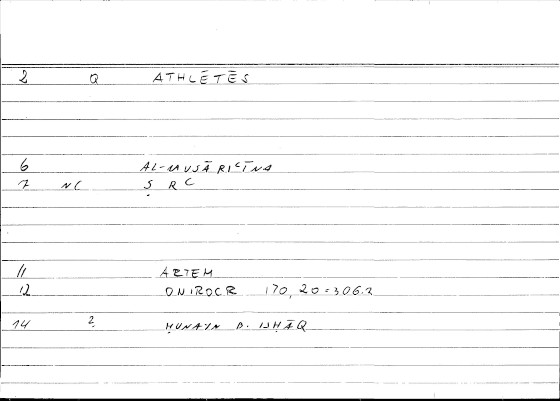 2 Q ATHLĒTĒS
6 AL-MUṢĀRIʿĪNA
7 NC Ṣ R ʿ
11 ARTEM
12 ONIROCR 170, 20 = 306.2
14 2 ḤUNAYN B. ISḤĀQ